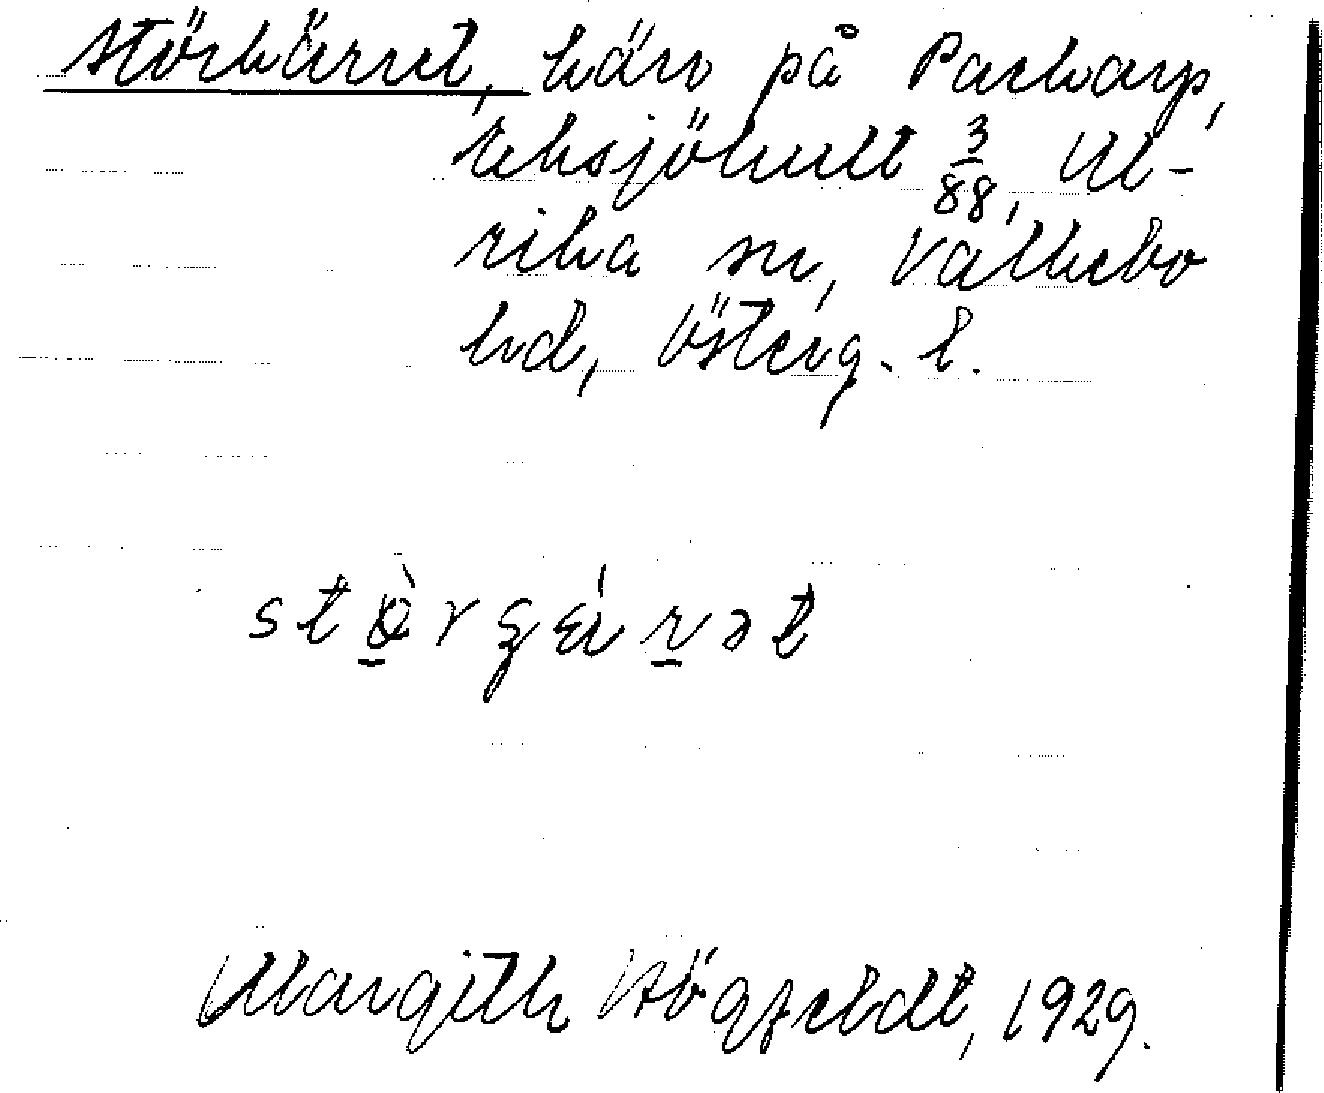 Störkärret, kärr på Packarp,
reksjöhult 3/88, Ul-
rika sn, Valkebo
hd, Österg. l.
stø̀rʒɛ́rət
Margith Högfeldt, 1929.